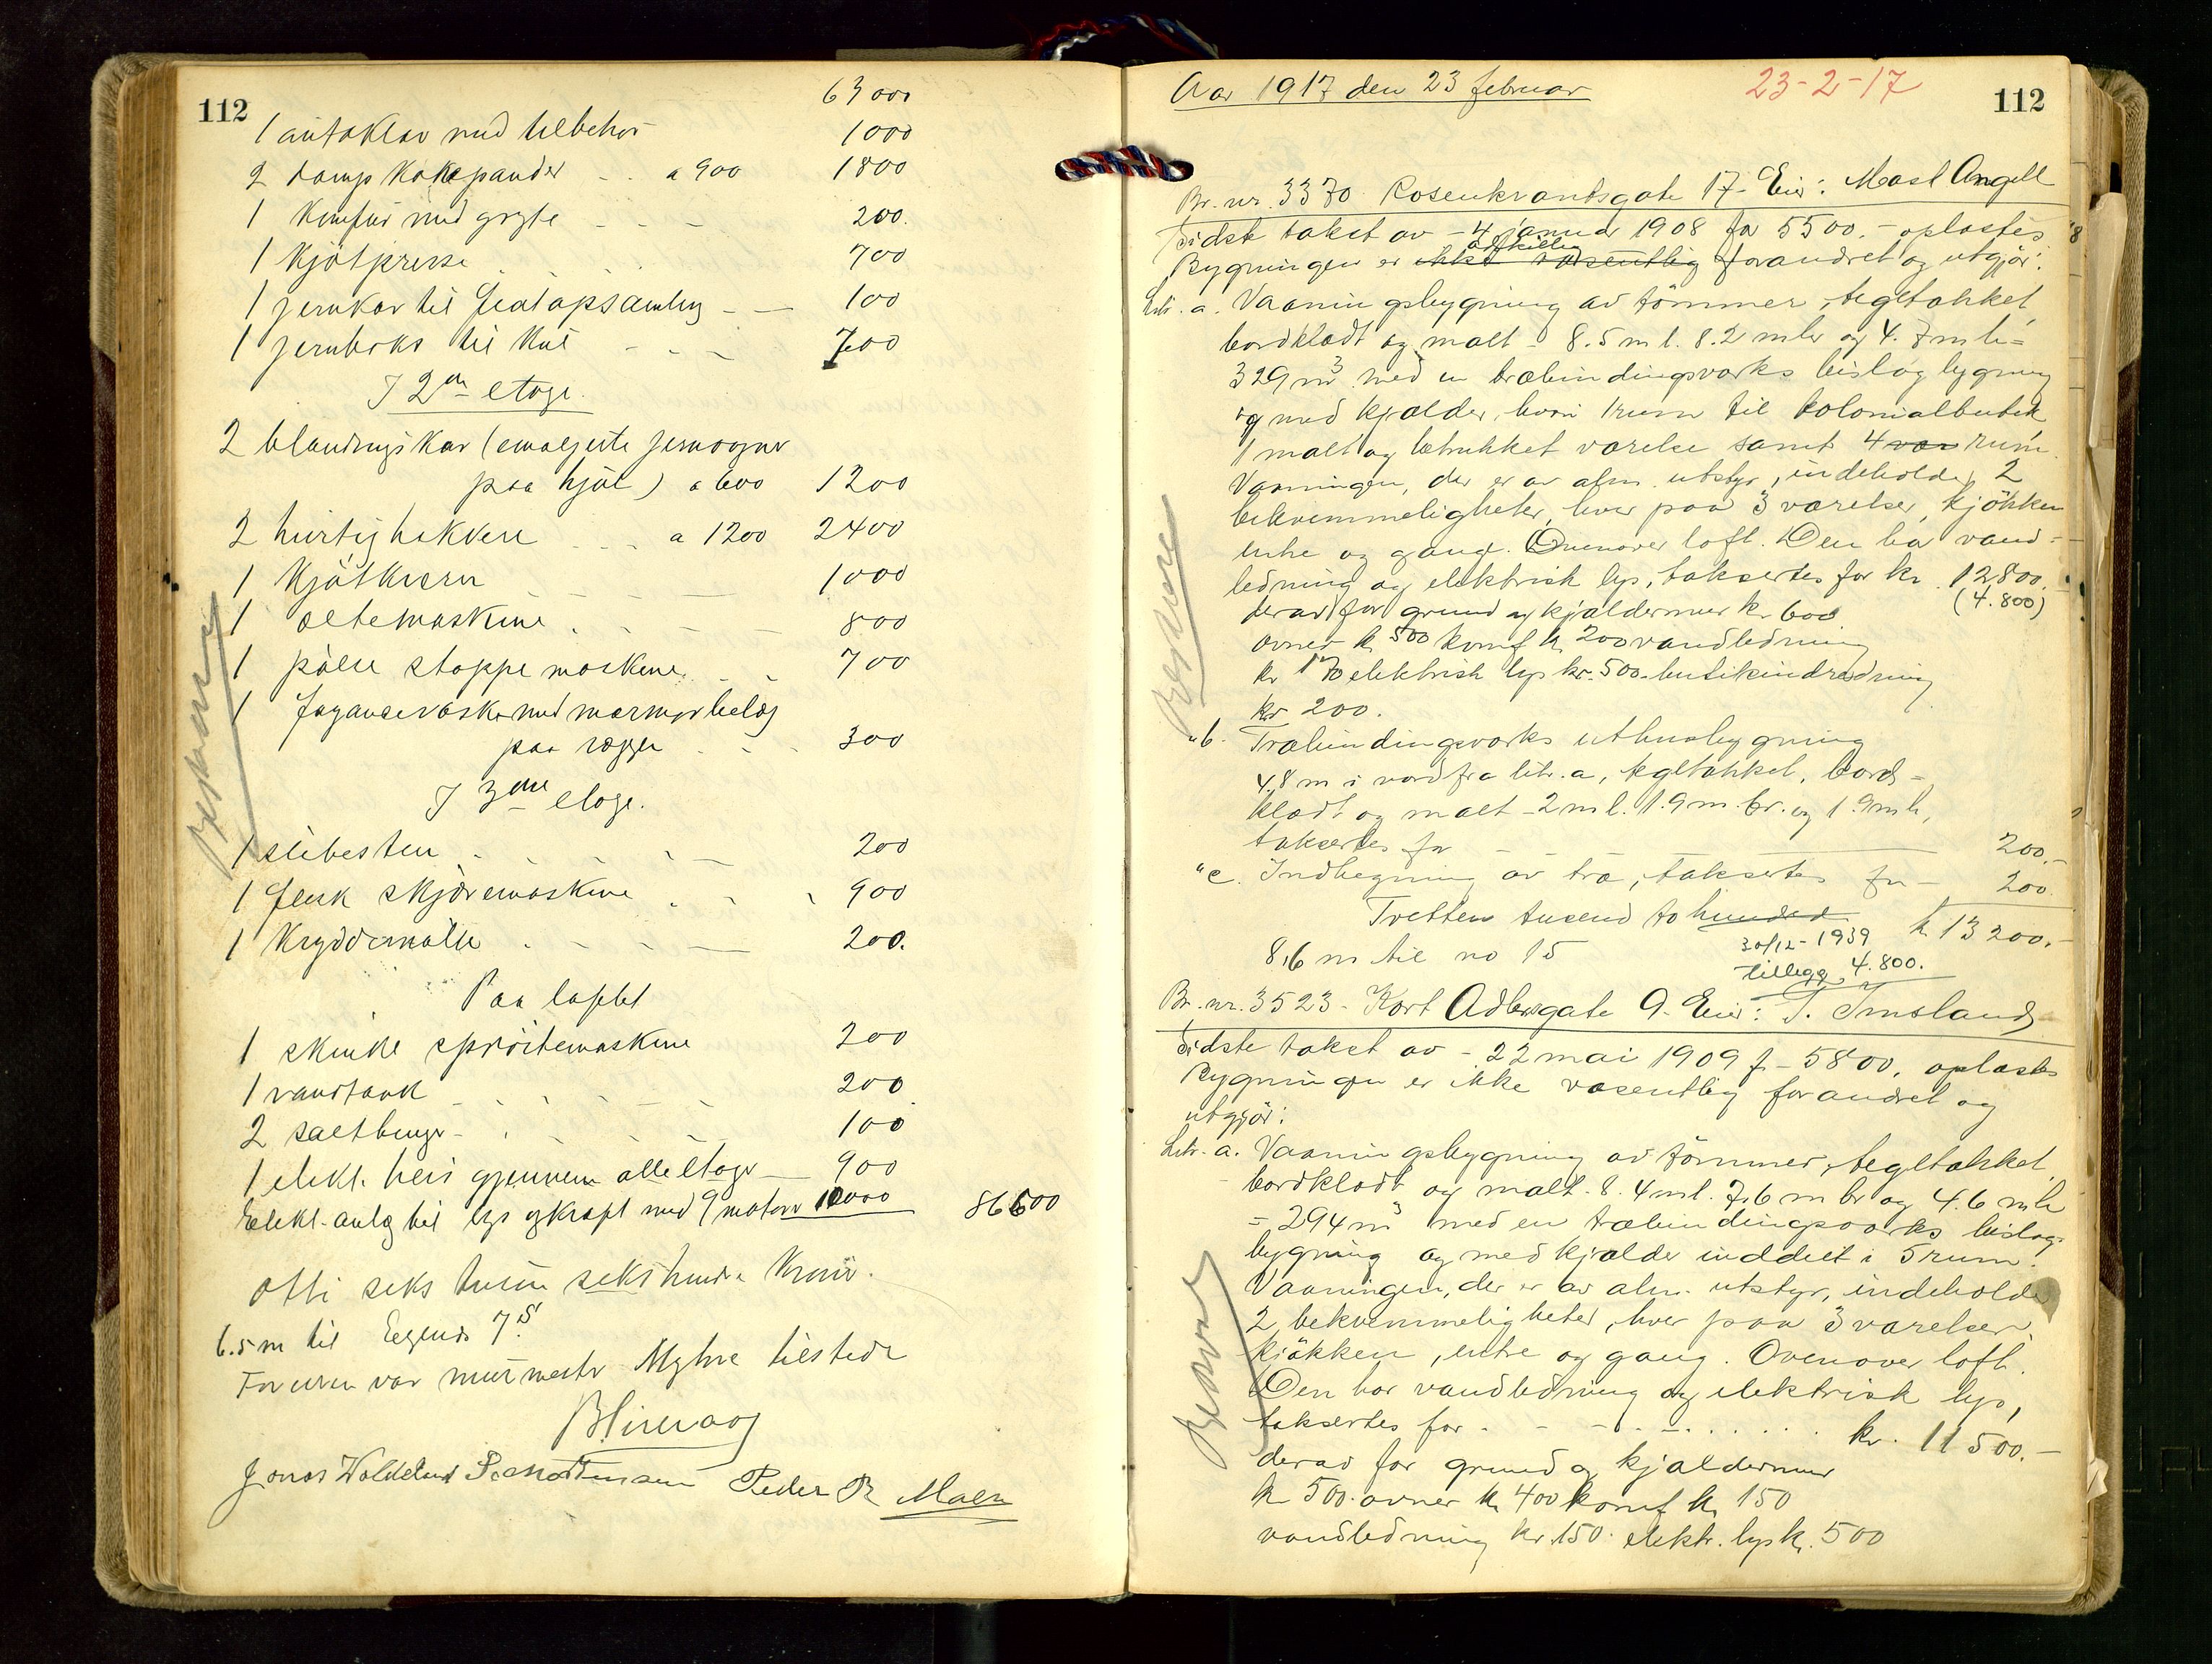 112
63000
1 autoklav med tilbehør 1000
2 damp kokepander - - a 900 1800
1 komfur med gryte - - - 200.
1 Kjøtpresse 700
1 jernkar til opsamling - - 100
1 jernboks til kul - - - 700
I 2den etage.
2 blandingskar (emaljerte jernvogner
paa hjul) a 600 1200
2 hurtighakkere a 1200 2400
1 Kjøtkværn 1000
1 æltemaskine 800
1 pølse stoppemaskine 700
1 Fayancevask med marmorbelæg
paa vægge 300
I 3die etage.
1 slibesten 200
1 flesk skjæremaskine 900
1 Kryddermølle 200.
Paa loftet
1 skinke sprøitemaskine 200
1 vandtank 200
2 saltbinger 100
1 elekt. heis gjennem alle etager 900
Elekt. anlæg til lys og kraft med 9 motorer 10000 86600
Otti seks tusen seks hundre Kroner.
6.5 m til Eiegens 75.
For eieren var murmester Myhre tilstede
Jonas Peder R Maen
Bestaaende
112
Aar 1917 den 23 februar 23-2-17
Br. nr. 3370. Rosenkrantsgate 17- Eier: Angell
Sidste takst av - 4 januar 1908 for 5500.- oplæstes
adskillig
Bygningen er ikke væsentlig forandret og utgjør:
Litr. a. Vaaningsbygning av tømmer, tegltækket,
bordklædt og malt - 8.5 m l. 8.2 m br og 4.7 m h =
329 m³ med en træbindingsværks bislagbygning
og med kjælder, hvori 1 rum til kolonialbutik
1 malt og betrukket værelse samt 4 vær rum.
Vaaningen, der er av alm. utstyr, indeholder 2
bekvemmeligheter, hver paa 3 værelser, kjøkken
entre og gang. Ovenover loft. Den har vand-
ledning og elektrisk lys, taksertes for kr. 12800.
(4.800)
derav for grund og kjældermur kr. 600
ovner kr 500 komf kr 200 vandledning
kr 170 elektrisk lys kr. 500. butikindredning
kr 200.
" b. Træbindingsværks uthusbygning
4.8 m i nord fra litr. a, tegltækket, bord-
klædt og malt - 2 m l. 1.9 m. br. og 1.9 m h,
taksertes for 200.-
" c. Indhegning av træ, taksertes for - 200.
Tretten tusend to hundred kr 13200.-
8,6 m til no 15 30/12-1939
tillegg 4.800.
Br. nr. 3523 - Kort Adlersgate 9- Eier: T. Imsland
Sidste takst av - 22 mai 1909 f - 5800, oplæstes
Bygningen er ikke væsentlig forandret og
utgjør:
Litr. a. Vaaningsbygning av tømmer, tegltækket
bordklædt og malt. 8.4 m l. 7,6 m br og 4.6 m h
= 294 m³ med en træbindingsværks bislag-
bygning og med kjælder inddelt i 5 rum.
Vaaningen, der er av alm. utstyr, indeholder
2 bekvemmeligheter, hver paa 3 værelser
kjøkken, entre og gang. Ovenover loft.
Den har vandledning og elektrisk lys,
taksertes for - - - - kr. 11500.-
derav for grund og kjældermur
kr 500. ovner kr 400 komf kr 150
vandledning kr. 150. elektr. lys kr. 500